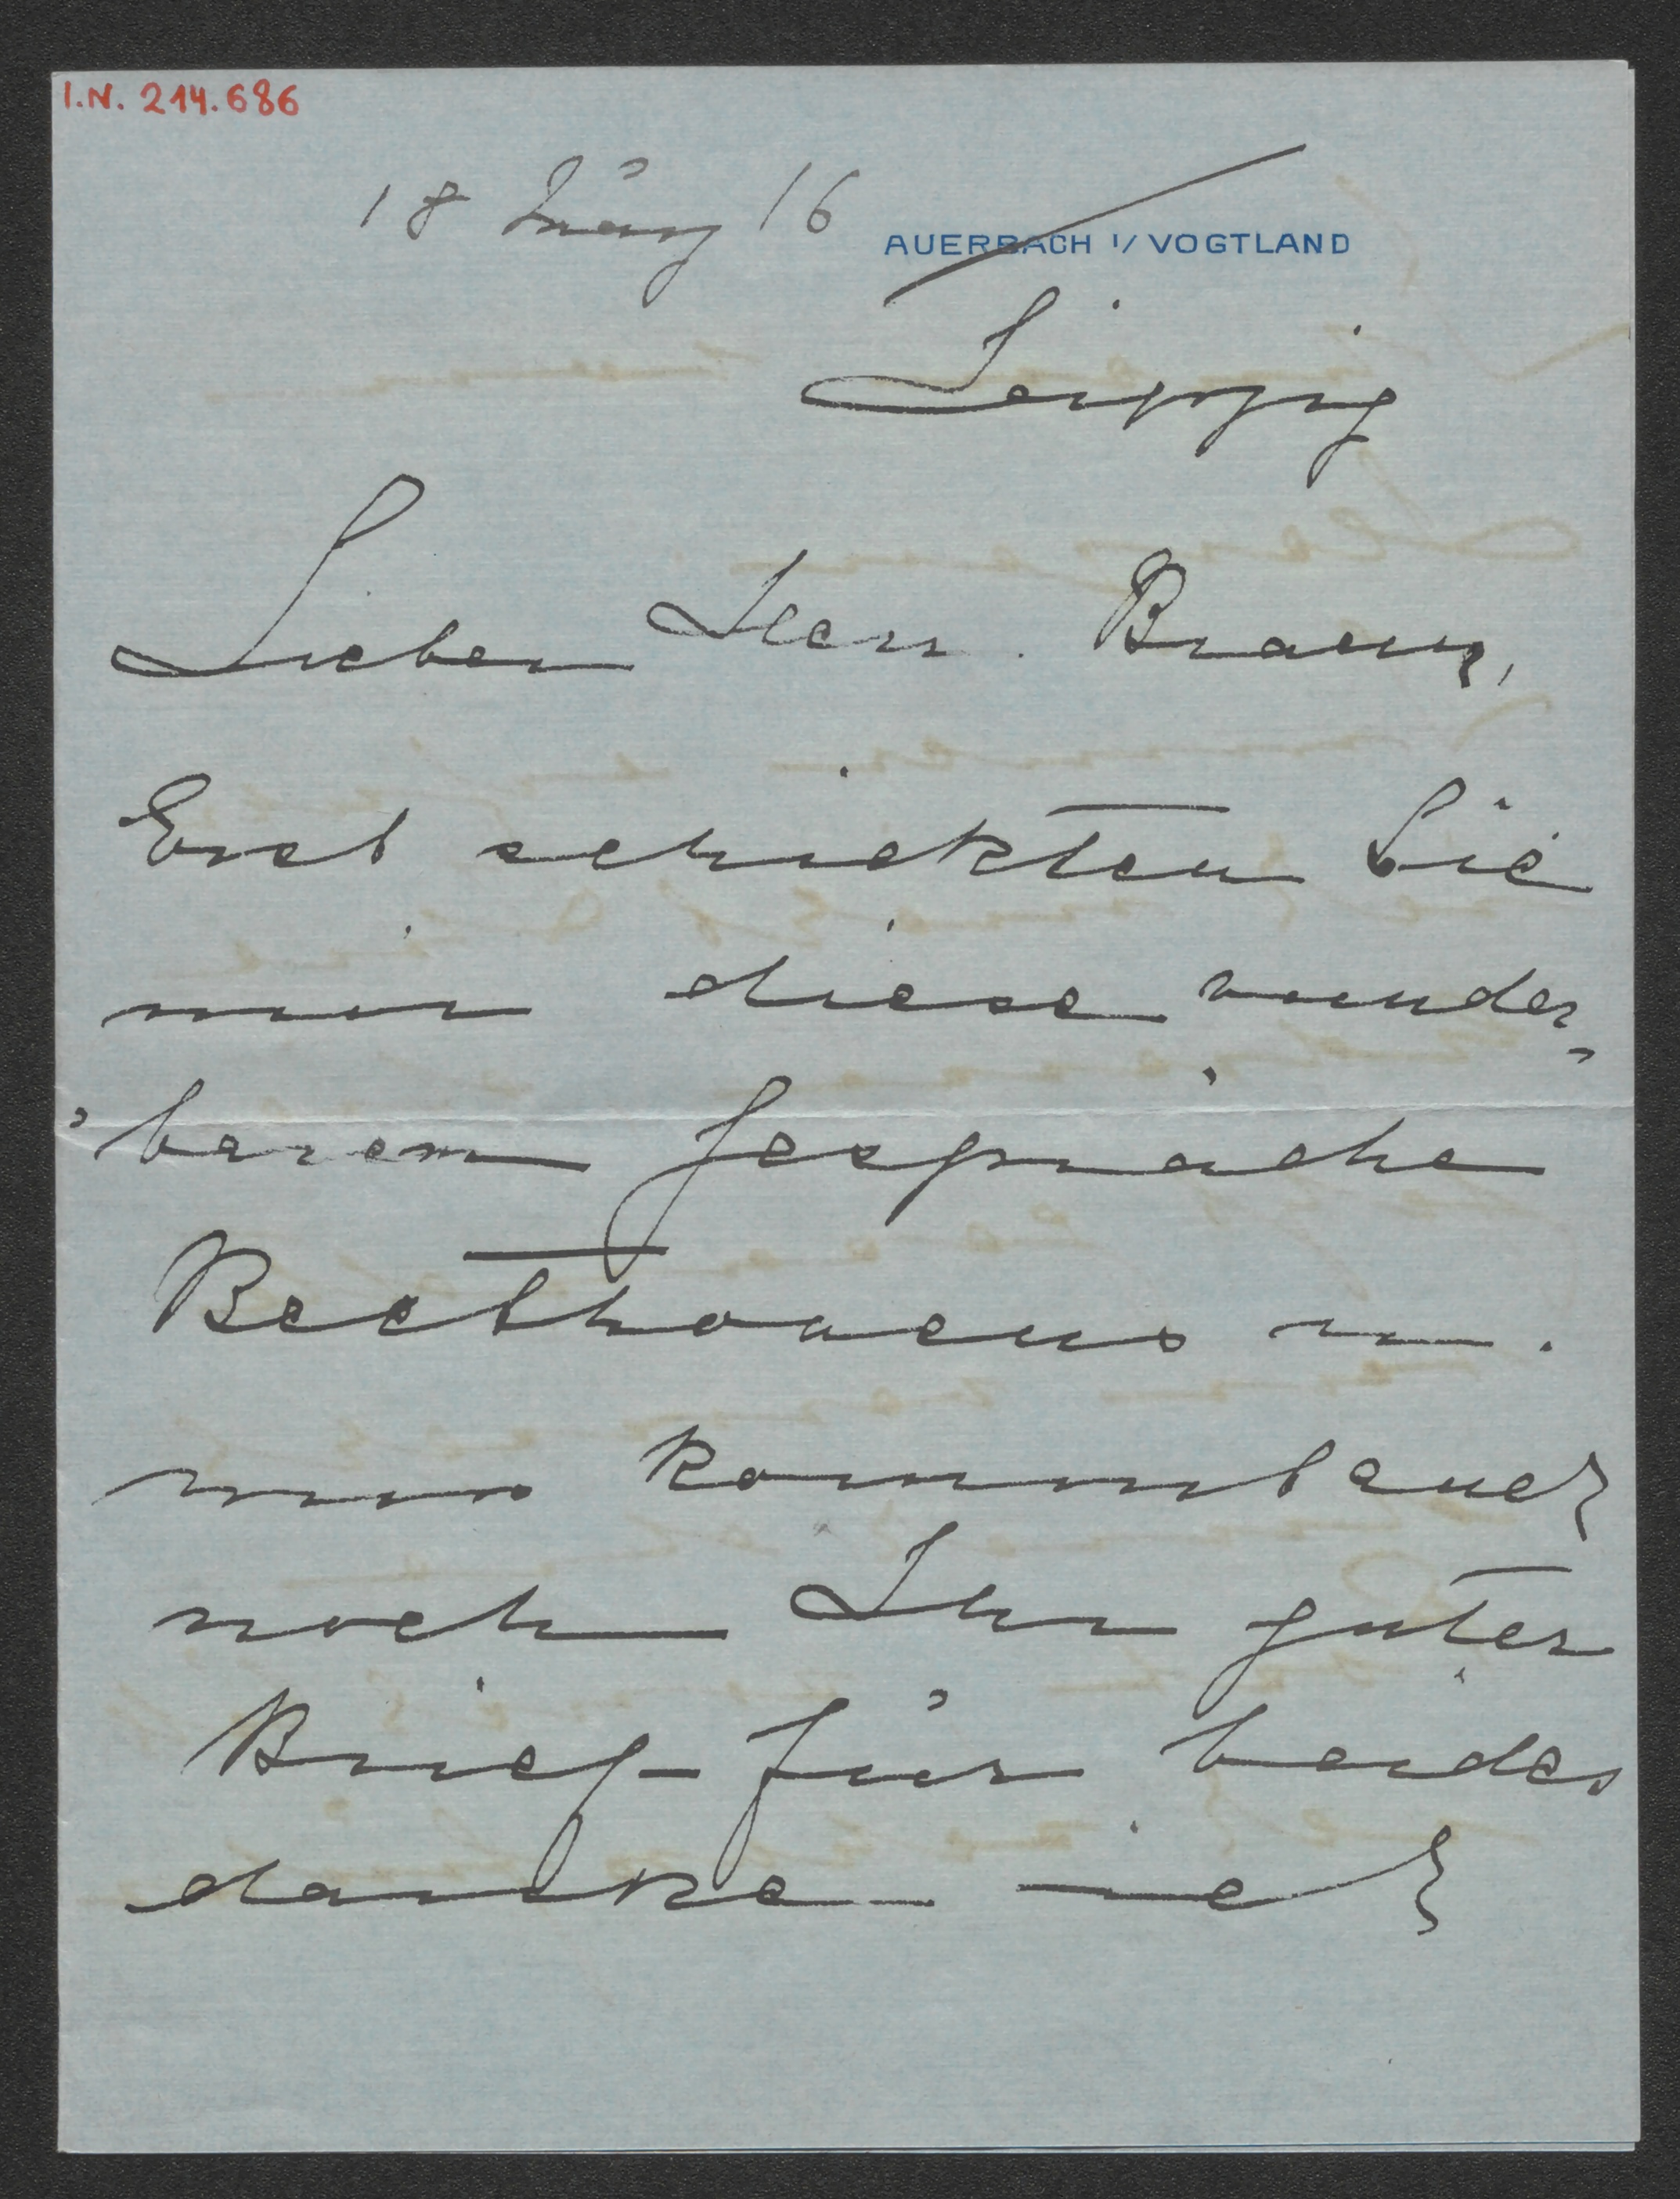 I.N. 214.686
18 März 16
AUERBACH i/ VOGTLAND
Leipzig
Lieber Herr Braun,
Erst schickten Sie
mir diese wunder=
=baren Gespräche
Beethovens u.
nun kommt auch
noch Ihr guter
Brief – für beides
danke ich